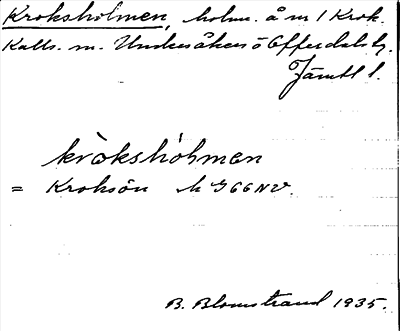 Kroksholmen, holm. å m / Krok.
Kalls. m. Undersåkers o Offerdals tg.
Jämtl l.
kròkshòhmen
= Kroksön k G66NV.
B. Blomstrand 1935.